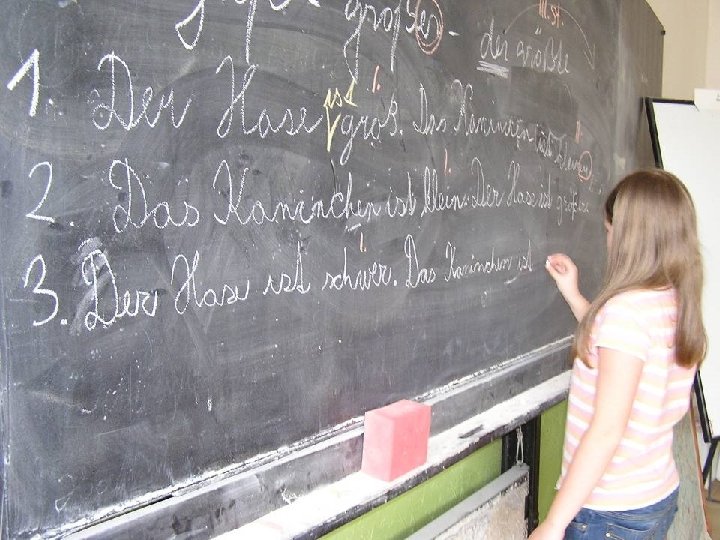 größer
der größte
1. Der Hase ist groß. Das Kaninchen ist kleiner
2. Das Kaninchen ist klein. Der Hase ist größer.
3. Der Hase ist schwer. Das Kaninchen ist